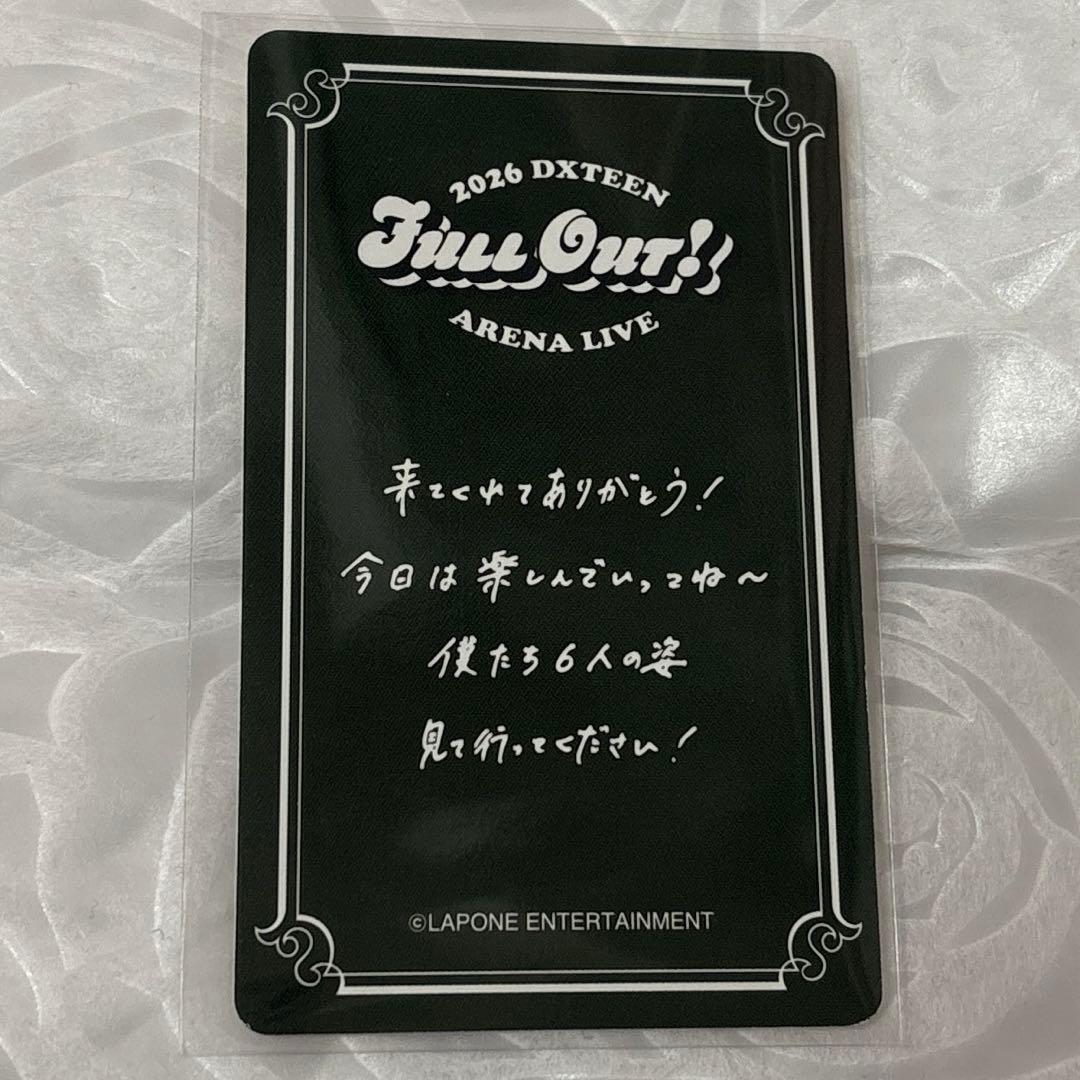 2026 DXTEEN
Full Out!!
ARENA LIVE
来てくれてありがとう!
今日は楽しんでいってね～
僕たち6人の姿
見て行ってください!
©LAPONE ENTERTAINMENT